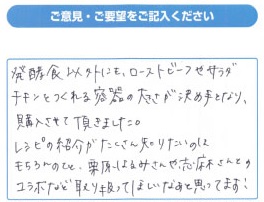 ご意見・ご要望をご記入ください
発酵食以外にも、ローストビーフやサラダ
チキンもつくれる容器の大きさが決め手となり、
購入させて頂きました。
レシピの紹介がたくさん知りたいのは
もちろんのこと、栗原はるみさんや志麻さんとの
コラボなど取り扱ってほしいなあと思ってます!